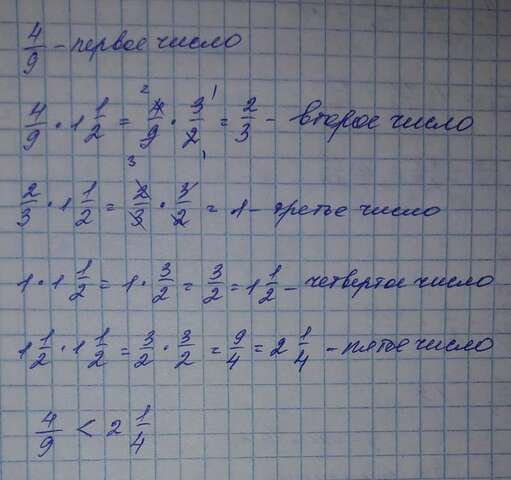 4/9 - первое число
4/9 · 1 1/2 = 4/9 · 3/2 = 2/3 - второе число
2/3 · 1 1/2 = 2/3 · 3/2 = 1 - третье число
1 · 1 1/2 = 1 · 3/2 = 3/2 = 1 1/2 - четвертое число
1 1/2 · 1 1/2 = 3/2 · 3/2 = 9/4 = 2 1/4 - пятое число
4/9 < 2 1/4